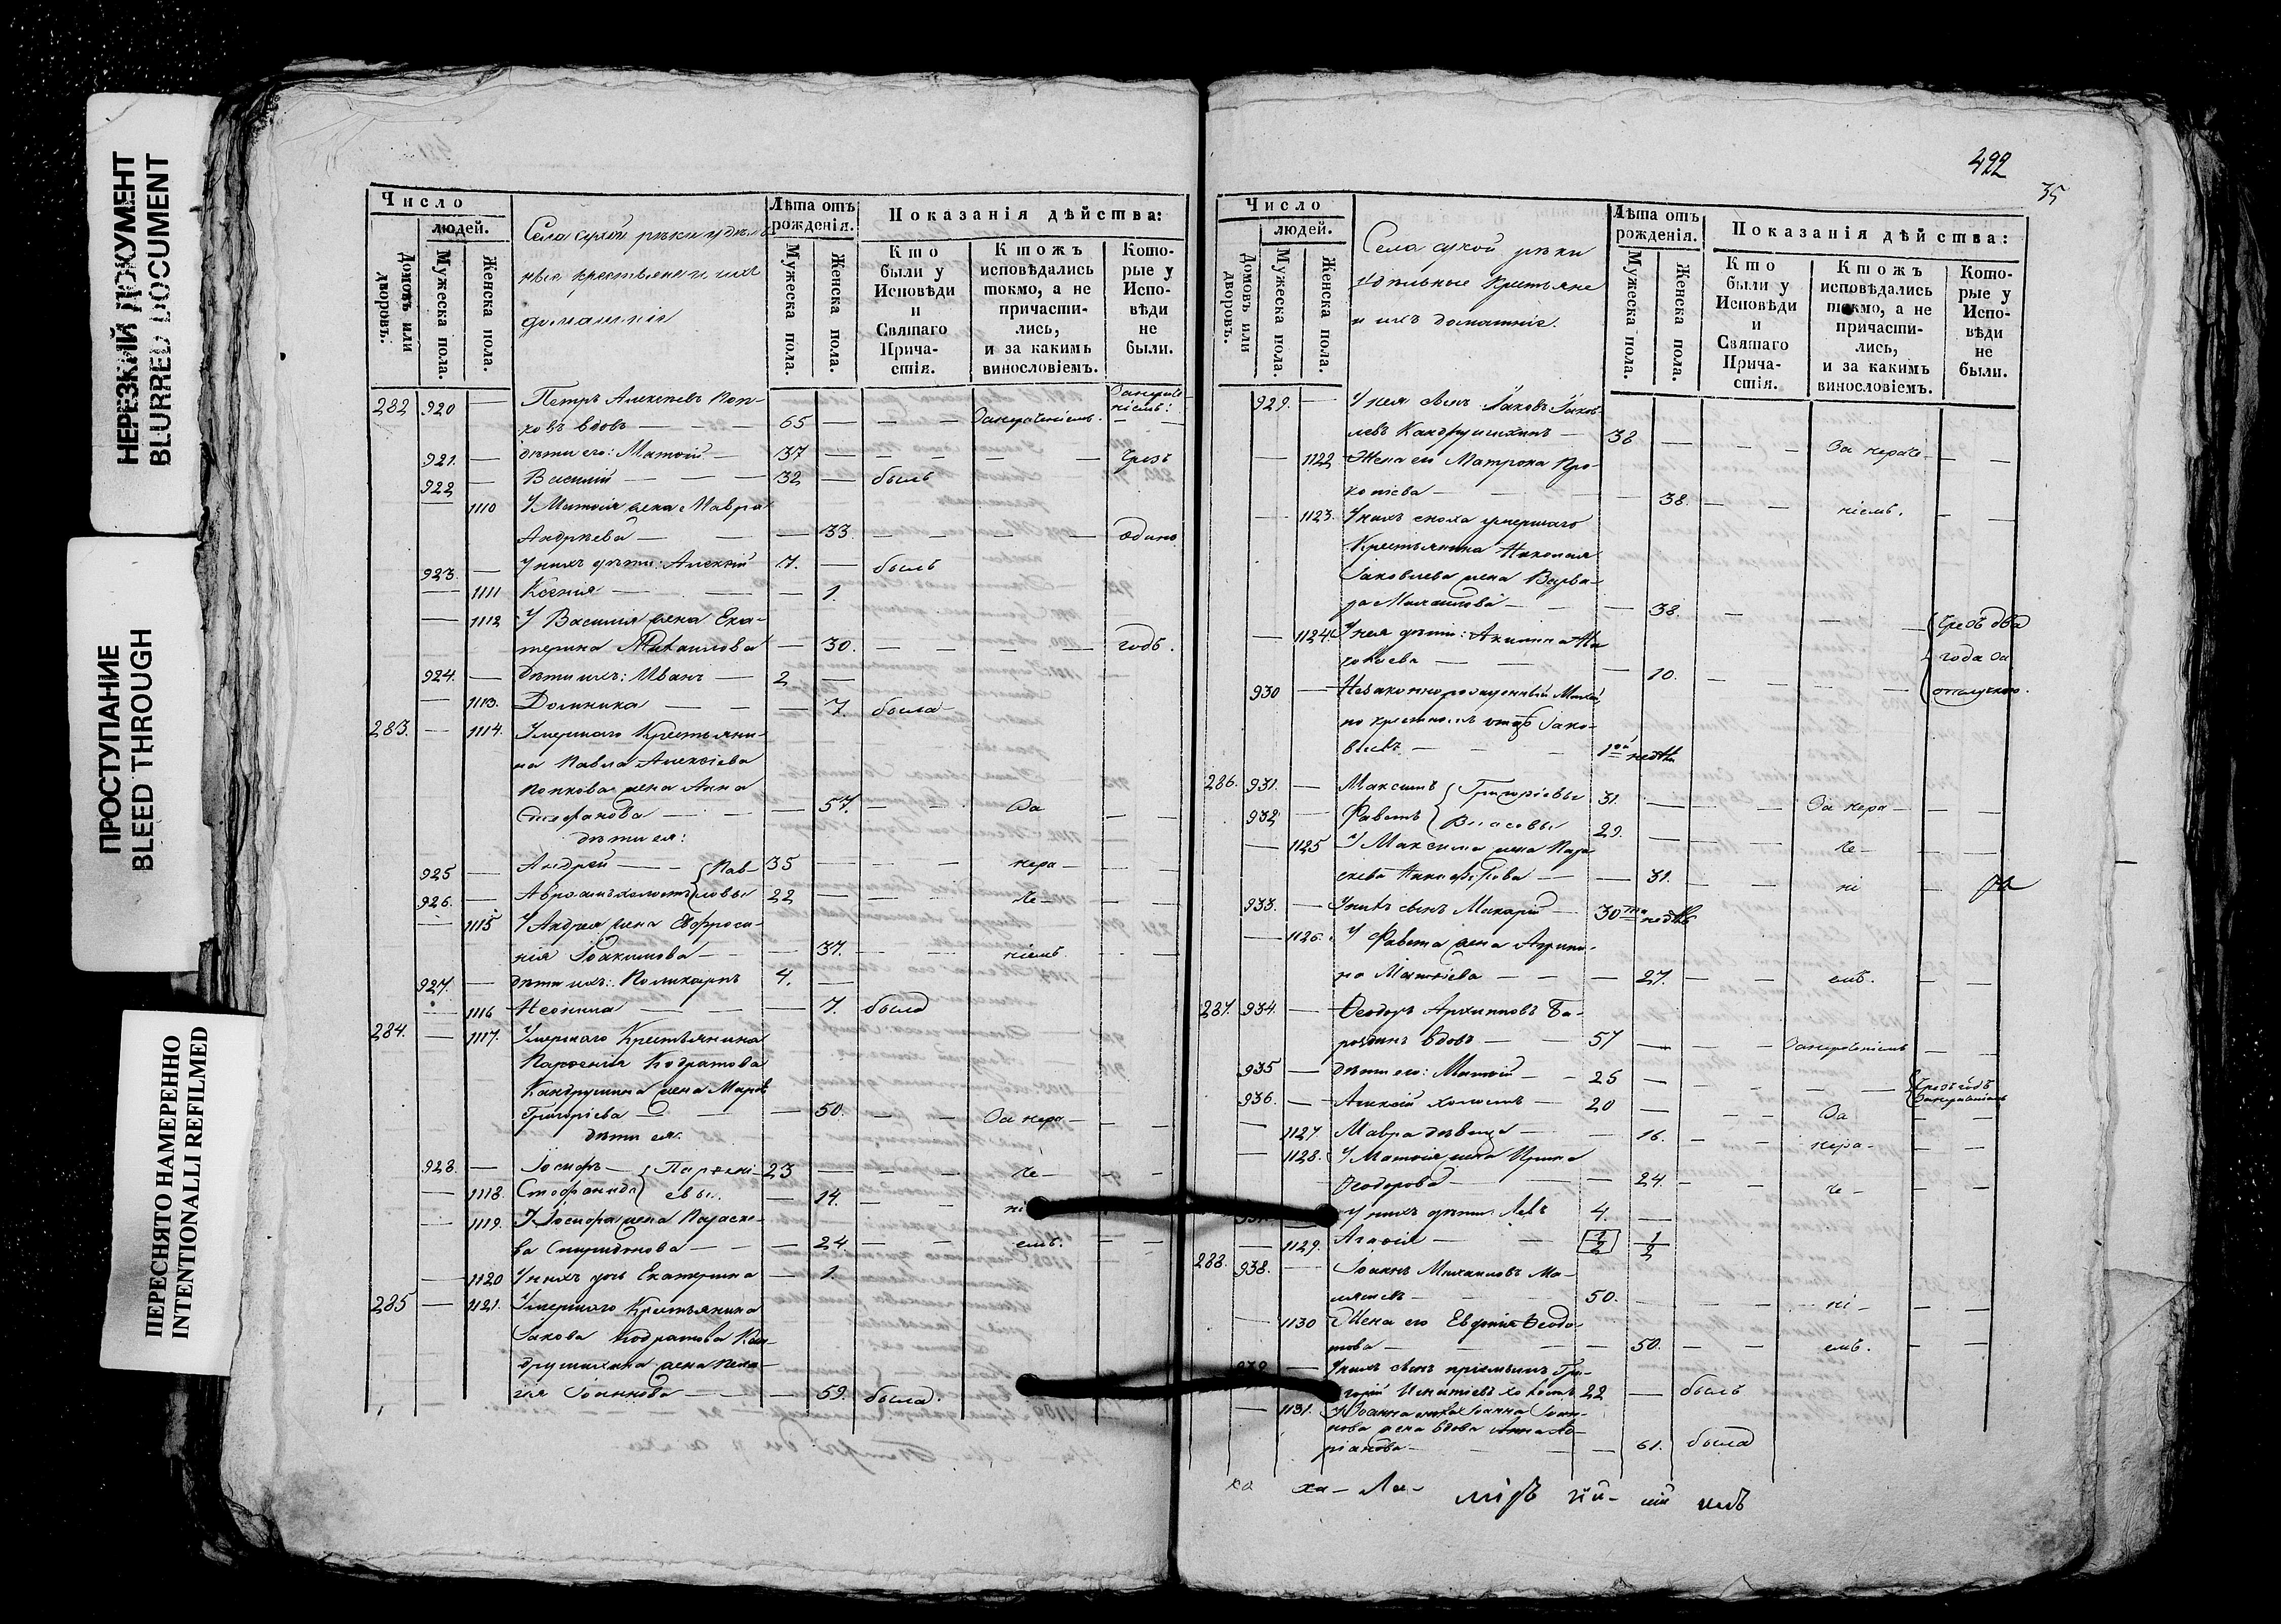 НЕРЕЗКИЙ ДОКУМЕНТ
BLURRED DOCUMENT
ПРОСТУПАНИЕ
BLEED THROUGH
ПЕРЕСНЯТО НАМЕРЕННО
INTENTIONALLI REFILMED
Число
людей.
Домовъ или дворовъ.
Мужеска пола.
Женска пола.
Села сухой реки удель
ныя крестьяне и ихъ
домашнія
Лѣта отъ рожденія.
Мужеска пола.
Женска пола.
Показанія дѣйства:
Кто были у Исповѣди и Святаго Прича- стія.
Ктожъ исповѣдались токмо, а не причасти- лись, и за какимъ винословіемъ.
Кото- рые у Испо- вѣди не были.
282 920 — Петръ Алексѣевъ Поп-
ковъ вдовъ — 65 — — — Занераченіемъ. — —
921. — дѣти его: Матөій — 37 — — — — — Чрезъ
922 — Василій — — — 32 — былъ
— 1110 У Матөія жена Мавра
Андрѣева — — — 33 — — — — одинъ
923. — У нихъ дѣти: Алексѣй 7. — былъ
— 1111 Ксенія — — — 1.
— 1112 У Василія жена Ека-
терина Михаилова — 30. — — — — годъ.
924. — Дѣти ихъ: Иванъ — 2 —
— 1113. Домника — — — 7. была
283. — 1114. Умершаго Крестьяни-
на Павла Алексіева
Попкова жена Анна
Стефанова — — — 57. — — За — —
дѣти ея:
925 — Андрей — — Пав- 35 — — — нера — —
926. — Авраамъ холостъ ловы 22 — — — че — — —
— 1115 У Андрея жена Евфроси-
нія Іоакимова — — 37. — — ніемъ. — —
927. — дѣти ихъ: Поликарпъ 4. —
— 1116 Неонила — — — 7. была
284. — 1117. Умершаго Крестьянина
Парөенія Кодратова
Кандрушина жена Марѳа
Григоріева — — — 50. — — За нера — — —
дѣти ея:
928. — Іосифъ — Парѳені- 23 — — — че — — —
— 1118. Стефанида евы. — 14. — — ні
— 1119. У Іосифа жена Параске-
ва Спиридонова — — — 24. — — емъ. — —
— 1120 У нихъ дочь Екатерина — 1.
285 — 1121. Умершаго Крестьянина
Іакова Кодратова Кан-
друшихина жена Пела-
гія Іоаннова — — — 59. была.
422
35
Число
людей.
Домовъ или дворовъ.
Мужеска пола.
Женска пола.
Села сухой реки
удельные Крестьяне
и ихъ домашніе.
Лѣта отъ рожденія.
Мужеска пола.
Женска пола.
Показанія дѣйства:
Кто были у Исповѣди и Святаго Прича- стія.
Ктожъ исповѣдались токмо, а не причасти- лись, и за какимъ винословіемъ.
Кото- рые у Испо- вѣди не были.
929. — У нея сынъ Іаковъ Іаков-
левъ Кандрушихинъ — 38 — — — За нераче — —
— 1122 Жена его Матрона Про-
копіева — — — 38. — — ніемъ. — —
— 1123. У нихъ сноха умершаго
Крестьянина Николая
Іаковлева жена Варва-
ра Михаилова — — 38. — — Чрезъ два
— 1124. У нея дѣти: Акилина Ни
колаева — — — 10. года За
930 — Незаконнорожденный
по крестномъ отцѣ Іако- отлучкою.
влевъ — — 1ой недѣли
286. 931. — Максимъ Григоріевы 31. — — — За нера — —
932 — Фавстъ Власовы 29. —
— 1125 У Максима жена Пара че — — —
скева Никифорова — — 31. — — ні — —
933. — У нихъ сынъ Макарій — 30ти недѣль
— 1126. У Фавста жена Агрипи-
на Матѳіева — — — 27. — — емъ. — —
287. 934. — Ѳеодоръ Архиповъ Ба-
роздинъ вдовъ — — 57 — — — Занераченіемъ — —
935 — дѣти его: Матѳій — 25 — — — Чрезъ годъ
936. — Алексій холостъ — 20 — — — За — —
— 1127. Мавра дѣвица — — 16. — — нера — — —
— 1128. У Матѳія жена Ирина
Ѳеодорова — — — 24. — че — — —
— У нихъ дѣти: Левъ 4. —
— 1129. Агаѳія — — 1/2 1/2
288. 938. — Іоаннъ Михаиловъ Ма-
50. — — — ні — — —
— 1130 Жена его Евфимія Ѳеодо-
това — — — 50. — — емъ. — —
939 — У нихъ сынъ пріемышъ Гри-
горій Игнатіевъ холостъ 22 — былъ
— 1131.
нова жена вдова Анна Ад-
ріанова — — — 61. была